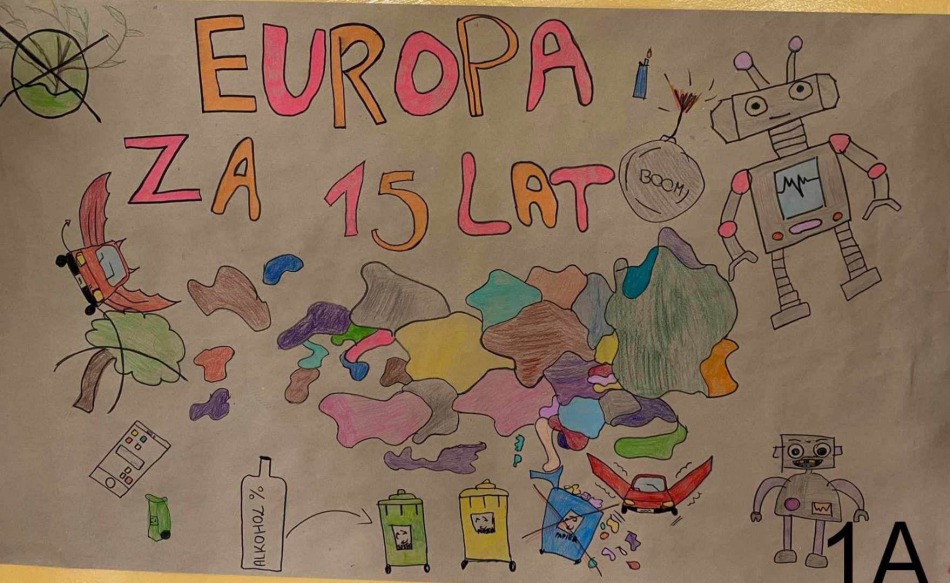 EUROPA
ZA 15 LAT
BOOM!
ALKOHOL %
PAPIER
1A